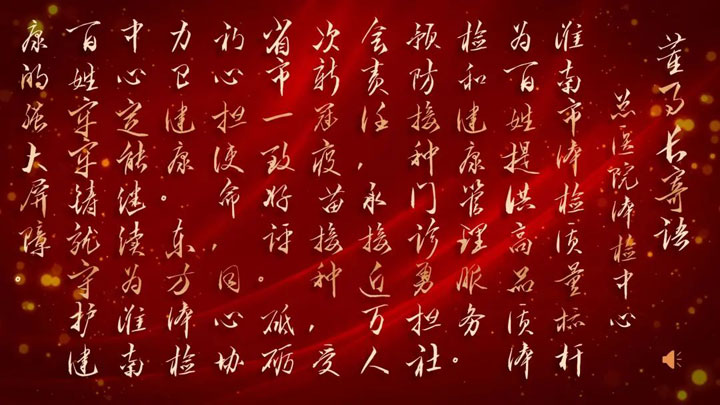 董事长寄语
总医院体检中心
淮南市体检质量标杆
为百姓提供高品质体
检和健康管理服务。
预防接种门诊勇担社
会责任,承接近万人
次新冠疫苗接种,受
省市一致好评。砥砺
初心担使命,同心协
力卫健康。东方体检
中心定能继续为淮南
百姓牢牢铸就守护健
康的强大屏障。